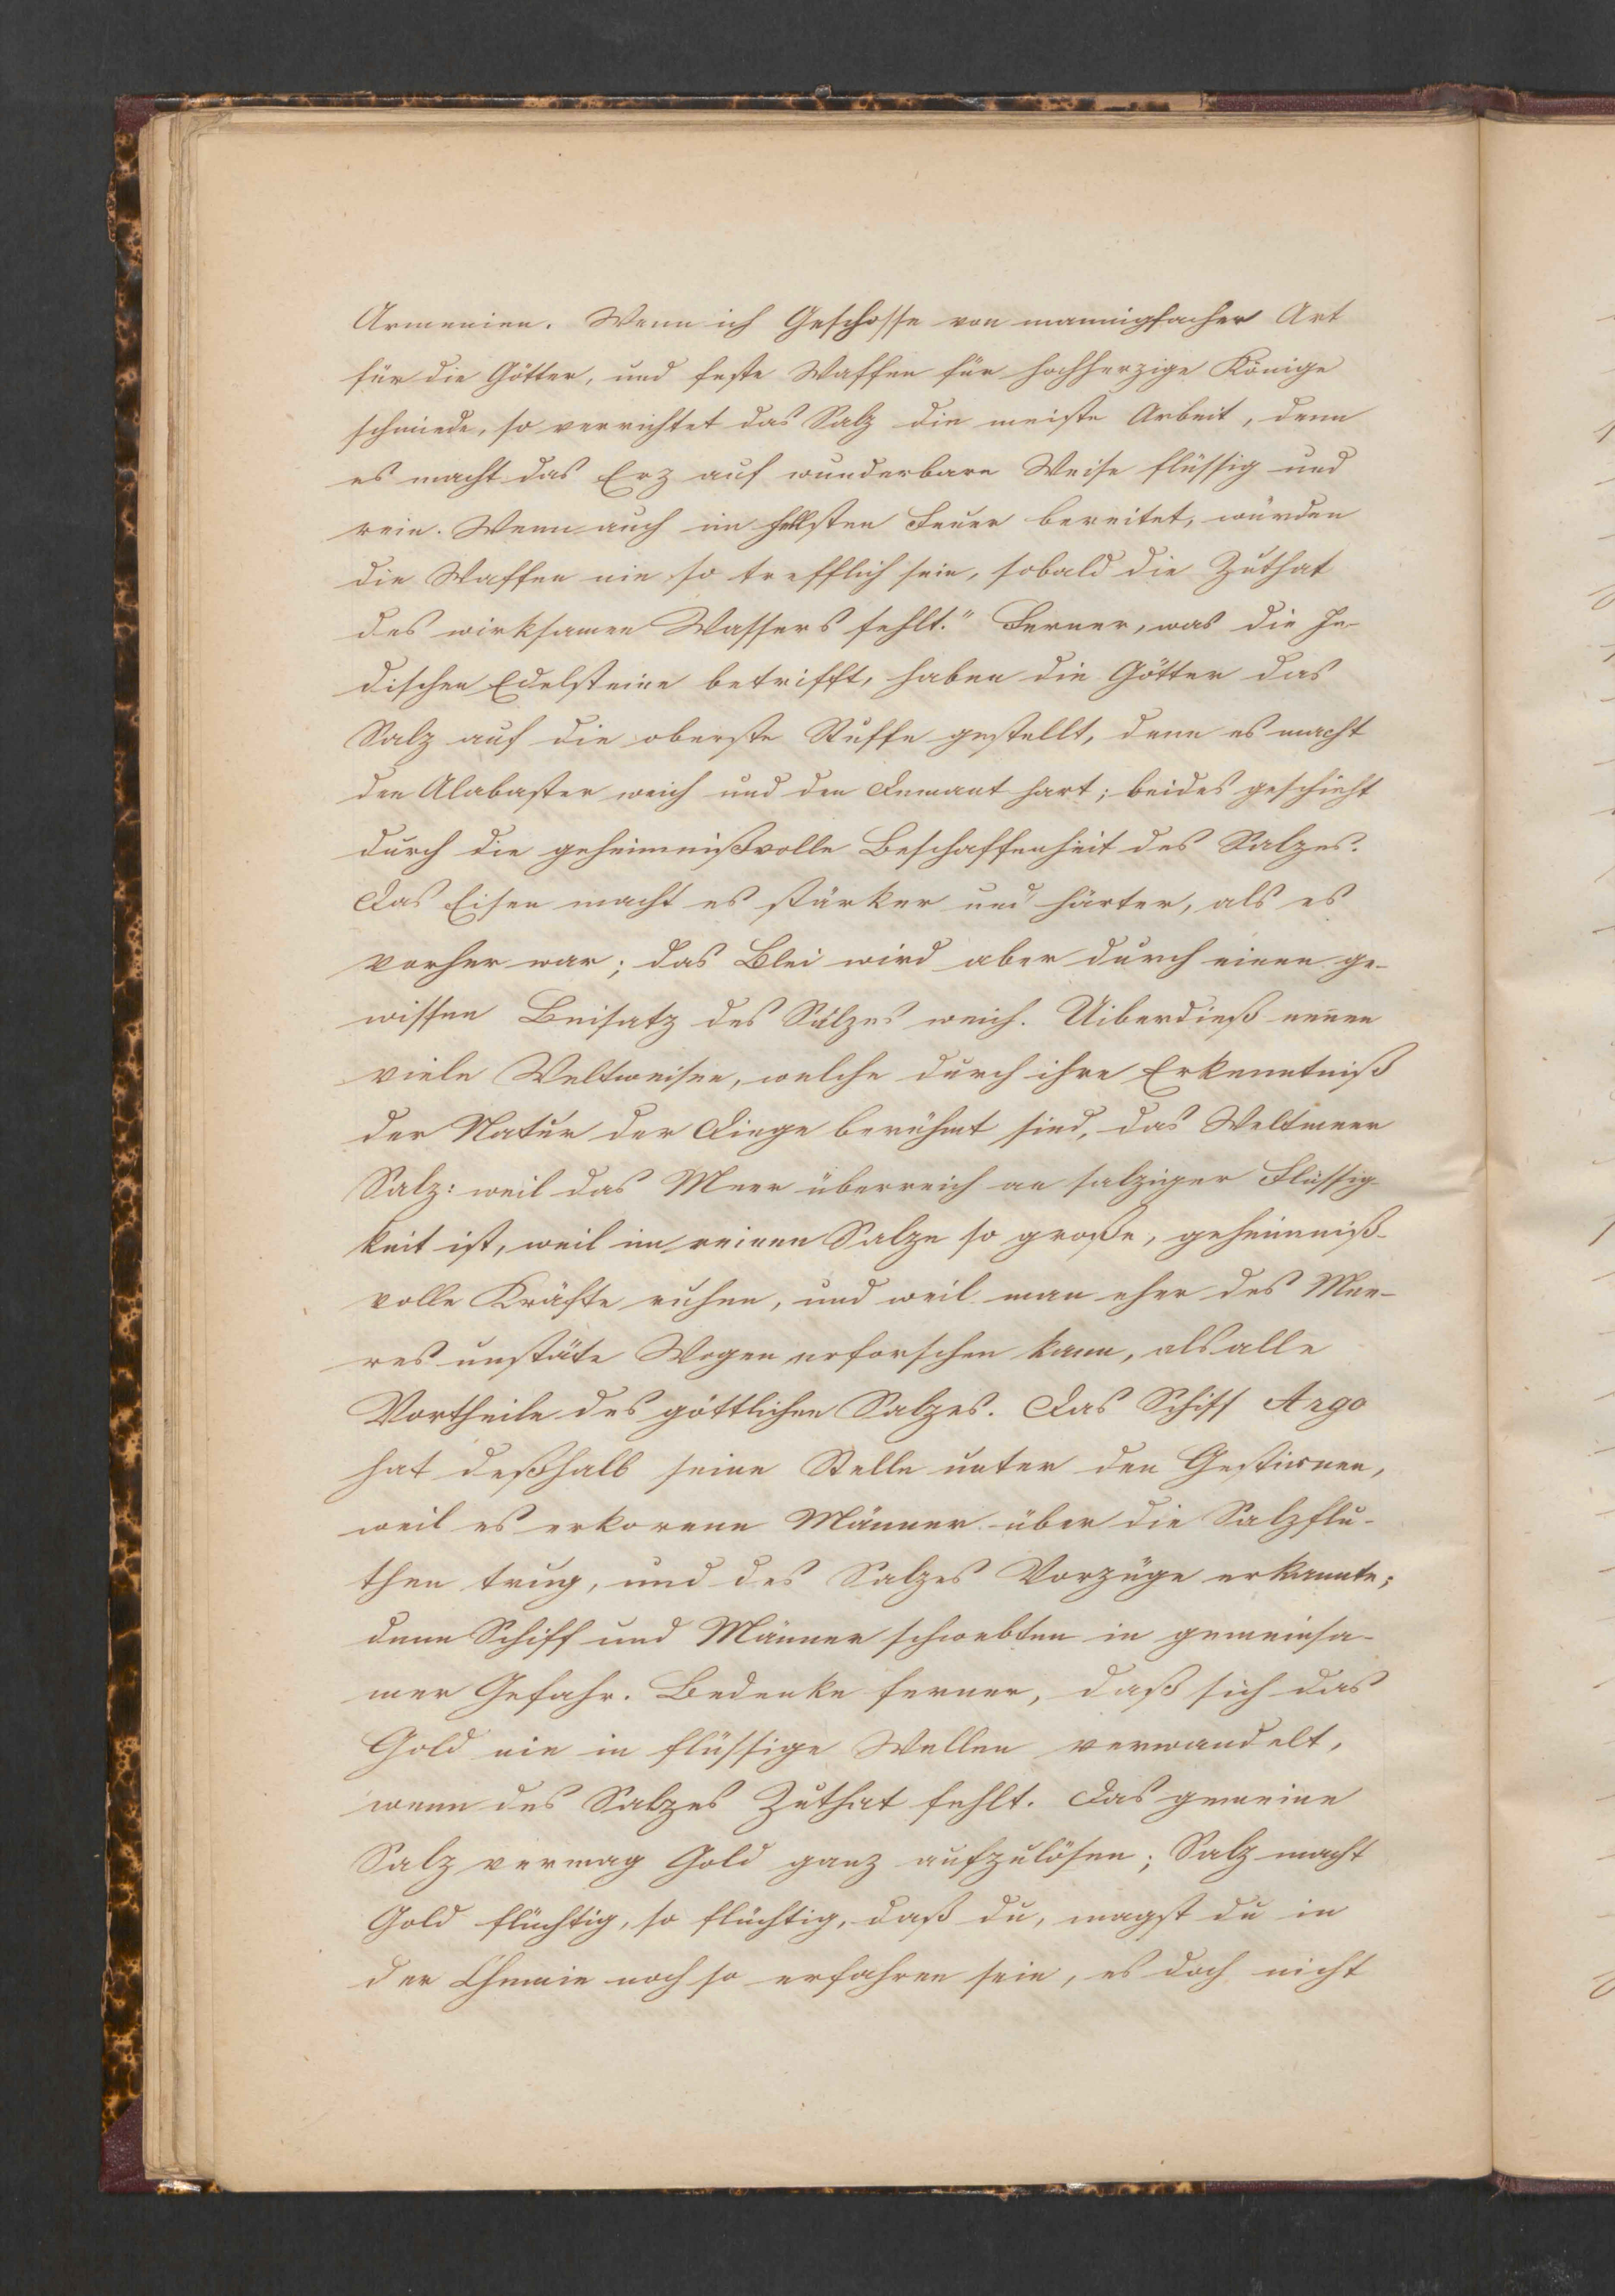 Armenien. Wenn ich Geschosse von mannigfacher Art
für die Götter, und feste Waffen für hochherzige Könige
schmiede, so verrichtet das Salz die meiste Arbeit, denn
es macht das Erz auf wunderbare Weise flüssig und
rein. Wenn auch im hellsten Feuer bereitet, würden
die Waffen nie so trefflich sein, sobald die Zuthat
des wirksamen Wassers fehlt." Ferner, was die In-
dischen Edelsteine betrifft, haben die Götter das
Salz auf die oberste Stuffe gestellt, denn es macht
den Alabaster weich und den Demant hart; beides geschieht
durch die geheimnißvolle Beschaffenheit des Salzes.
Das Eisen macht es stärker und härter, als es
vorher war; das Blei wird aber durch einen ge-
wissen Beisatz des Salzes weich. Uiberdieß nennen
viele Weltweisen, welche durch ihre Erkenntniß
der Natur der Dinge berühmt sind, das Weltmeer
Salz: weil das Meer überreich an salziger Flüssig-
keit ist, weil im reinen Salze so große, geheimniß-
volle Kräfte ruhen, und weil man eher des Mee-
res unstäte Wogen erforschen kann, als alle
Vortheile des göttlichen Salzes. Das Schiff Argo
hat deßhalb seine Stelle unter den Gestirnen,
weil es erkorene Männer über die Salzflu-
then trug, und des Salzes Vorzüge erkannte;
denn Schiff und Männer schwebten in gemeinsa-
mer Gefahr. Bedenke ferner, daß sich das
Gold nie in flüssige Wellen verwandelt,
wenn des Salzes Zuthat fehlt. Das gemeine
Salz vermag Gold ganz aufzulösen; Salz macht
Gold flüchtig, so flüchtig, daß du, magst du in
der Chemie noch so erfahren sein, es doch nicht